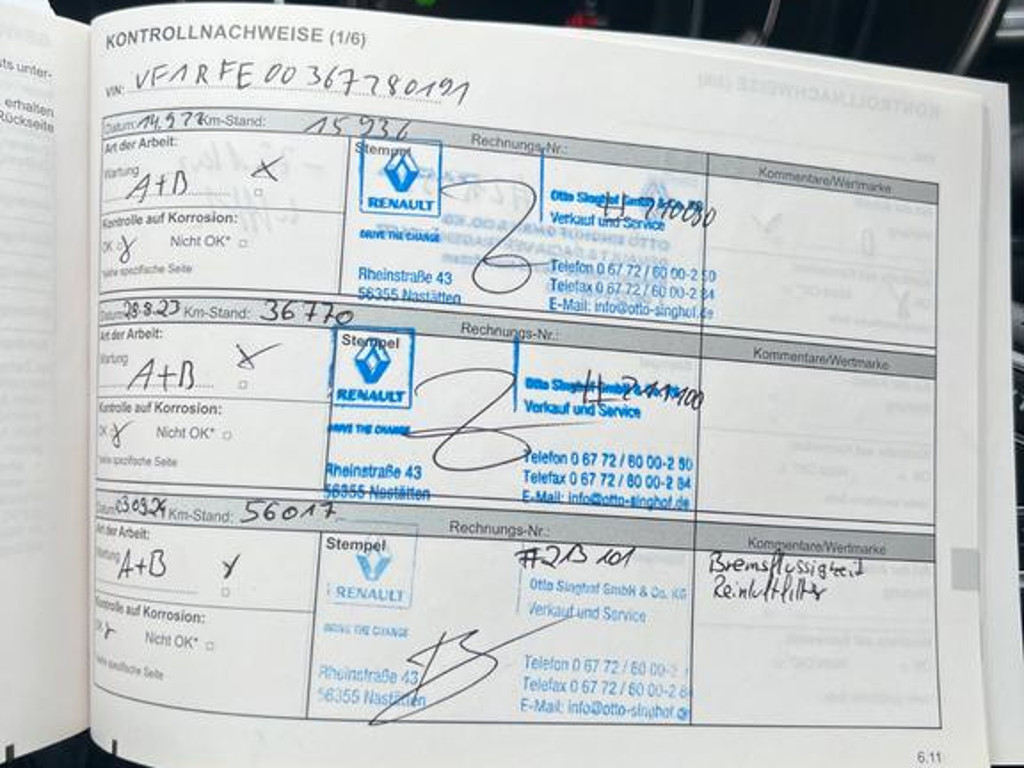 sts unter-
erhalten
Rückseite
KONTROLLNACHWEISE (1/6)
VIN: VF1RFE00367280191
Datum: 14.9.22 Km-Stand: 15936 Rechnungs-Nr.: Kommentare/Wertmarke
Art der Arbeit:
Wartung A+B
Kontrolle auf Korrosion:
OK Nicht OK*
*siehe spezifische Seite
Stempel
RENAULT
DRIVE THE CHANGE
Rheinstraße 43
56355 Nastätten
Otto Singhof GmbH & Co. KG
Verkauf und Service
Telefon 0 67 72 / 60 00-2 80
Telefax 0 67 72 / 60 00-2 84
E-Mail: info@otto-singhof.de
Datum: 29.8.23 Km-Stand: 36770 Rechnungs-Nr.: Kommentare/Wertmarke
Art der Arbeit:
Wartung A+B
Kontrolle auf Korrosion:
OK Nicht OK*
*siehe spezifische Seite
Stempel
RENAULT
DRIVE THE CHANGE
Rheinstraße 43
56355 Nastätten
Otto Singhof GmbH & Co. KG
Verkauf und Service
Telefon 0 67 72 / 60 00-2 80
Telefax 0 67 72 / 60 00-2 84
E-Mail: info@otto-singhof.de
Datum: 03.09.24 Km-Stand: 56017 Rechnungs-Nr.: Kommentare/Wertmarke
Art der Arbeit:
Wartung A+B
Kontrolle auf Korrosion:
OK Nicht OK*
*siehe spezifische Seite
Stempel
RENAULT
DRIVE THE CHANGE
Rheinstraße 43
56355 Nastätten
#213101
Otto Singhof GmbH & Co. KG
Verkauf und Service
Telefon 0 67 72 / 60 00-2
Telefax 0 67 72 / 60 00-2 8
E-Mail: info@otto-singhof.de
Bremsflüssigkeit
Reinluftfilter
6.11